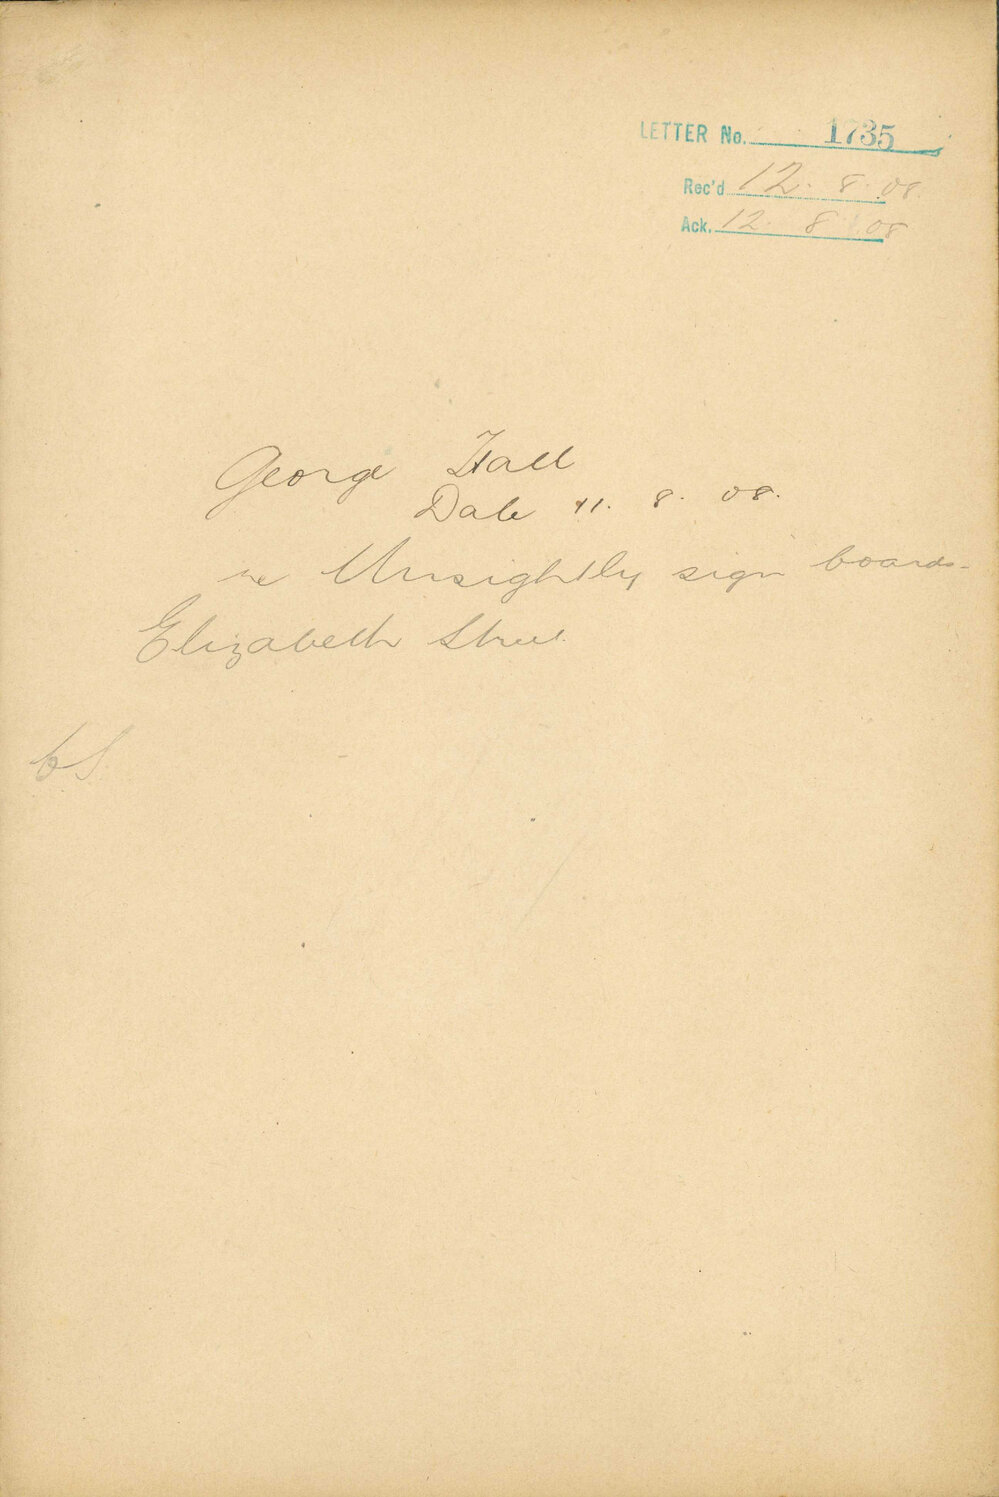 LETTER No. 1735
Rec'd 12. 8. 08.
Ack. 12. 8. 08
George Hall
Date 11. 8. 08.
re Unsightly sign boards-
Elizabeth Street.